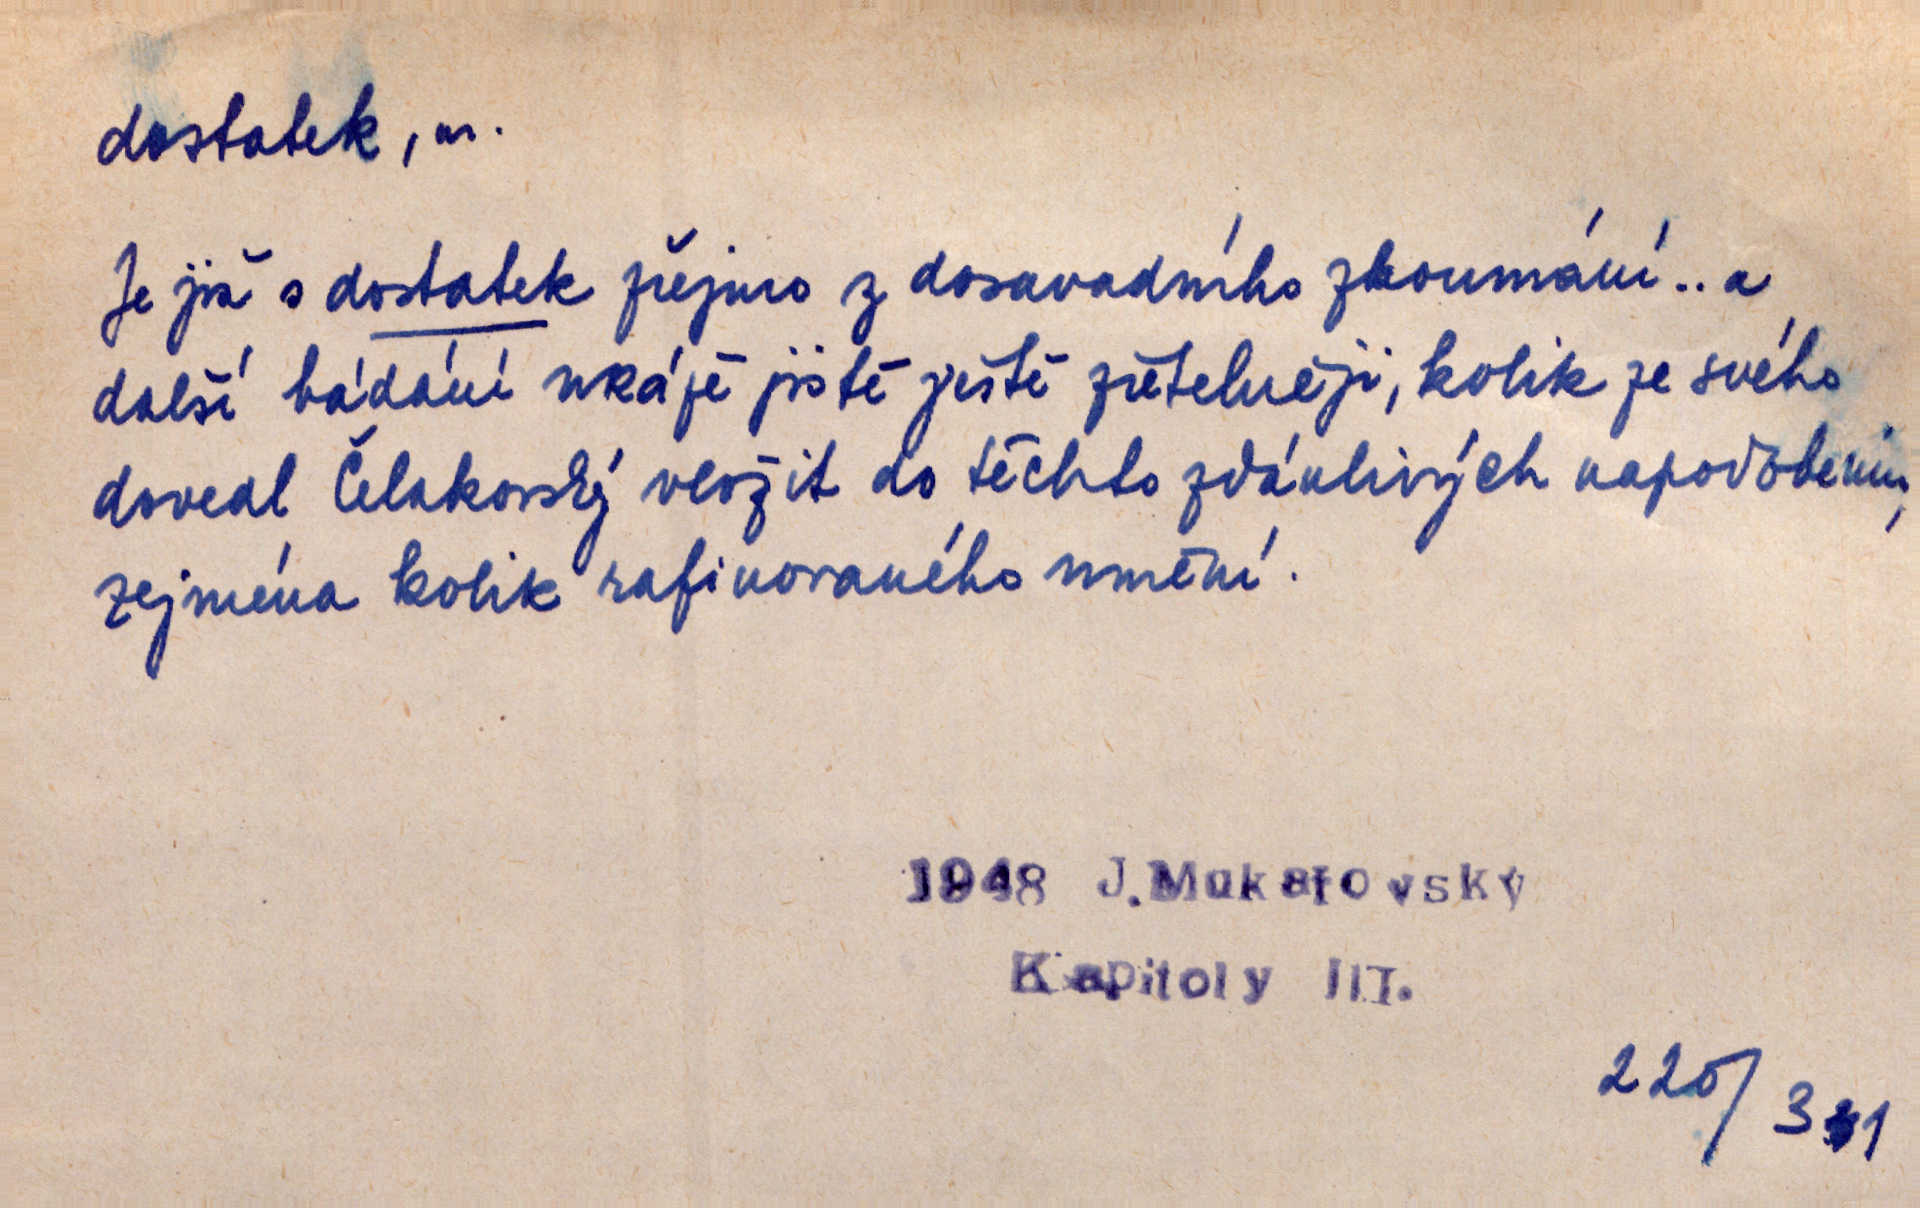 dostatek, m.
Je již s dostatek zřejmo z dosavadního zkoumání .. a
další bádání ukáže jistě ještě zřetelněji, kolik ze svého
dovedl Čelakovský vložit do těchto zdánlivých napodobenin,
zejména kolik rafinovaného umění.
1948 J.Mukařovský
Kapitoly III.